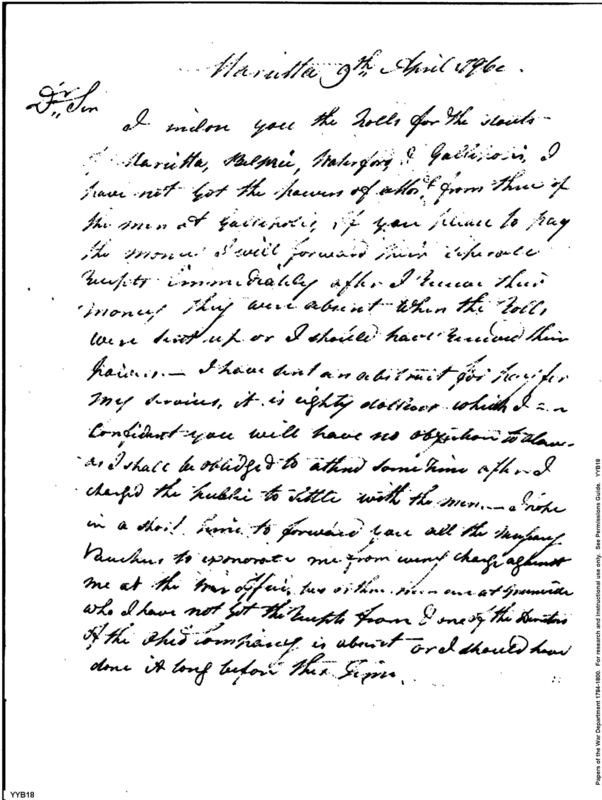 Marietta 9th April 1796
Dr Sir
I inclose you the Rolls for the scouts
of Marietta, Belprie, Waterford & Gallipolis, I
have not got the powers of attoy from three of
the men at Gallipolis, if you please to pay
the money I will forward their
Recepts immediately after I Receive their
money they were absent when the Rolls
were sent up or I should have Received their
powers.— I have sent an abstract for pay for
my services, it is eighty dollars which I am
confident you will have no objection to allow
as I shall be obliedged to attend some time after I
charged the public to settle with the men.— I hope
in a short time to forward you all the necessary
Vouchers to exonorate me from every charge against
me at the war office, two or three men are at
who I have not got the Recepts from & one of the Directors
of the Ohio Company is absent or I should have
done it long before this time.
YYB18
Papers of the War Department 1784-1800. For research and instructional use only. See Permissions Guide. YYB18